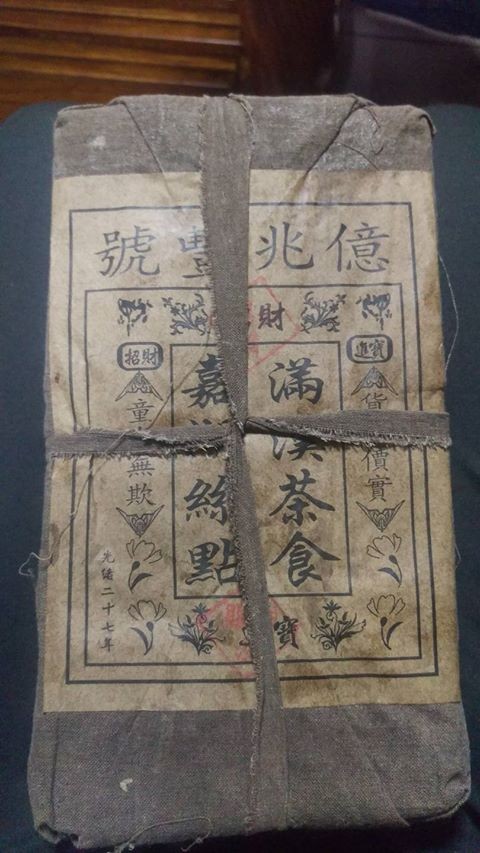 億兆豐號
財
進寶
招財
貨 價實
滿漢茶食
嘉湖絲點
童叟無欺
光緒二十七年
寶